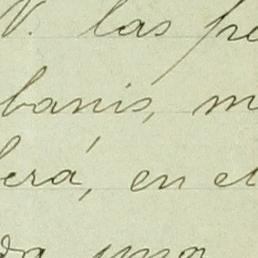 V. las pe
banis, m
berá, en el
da una